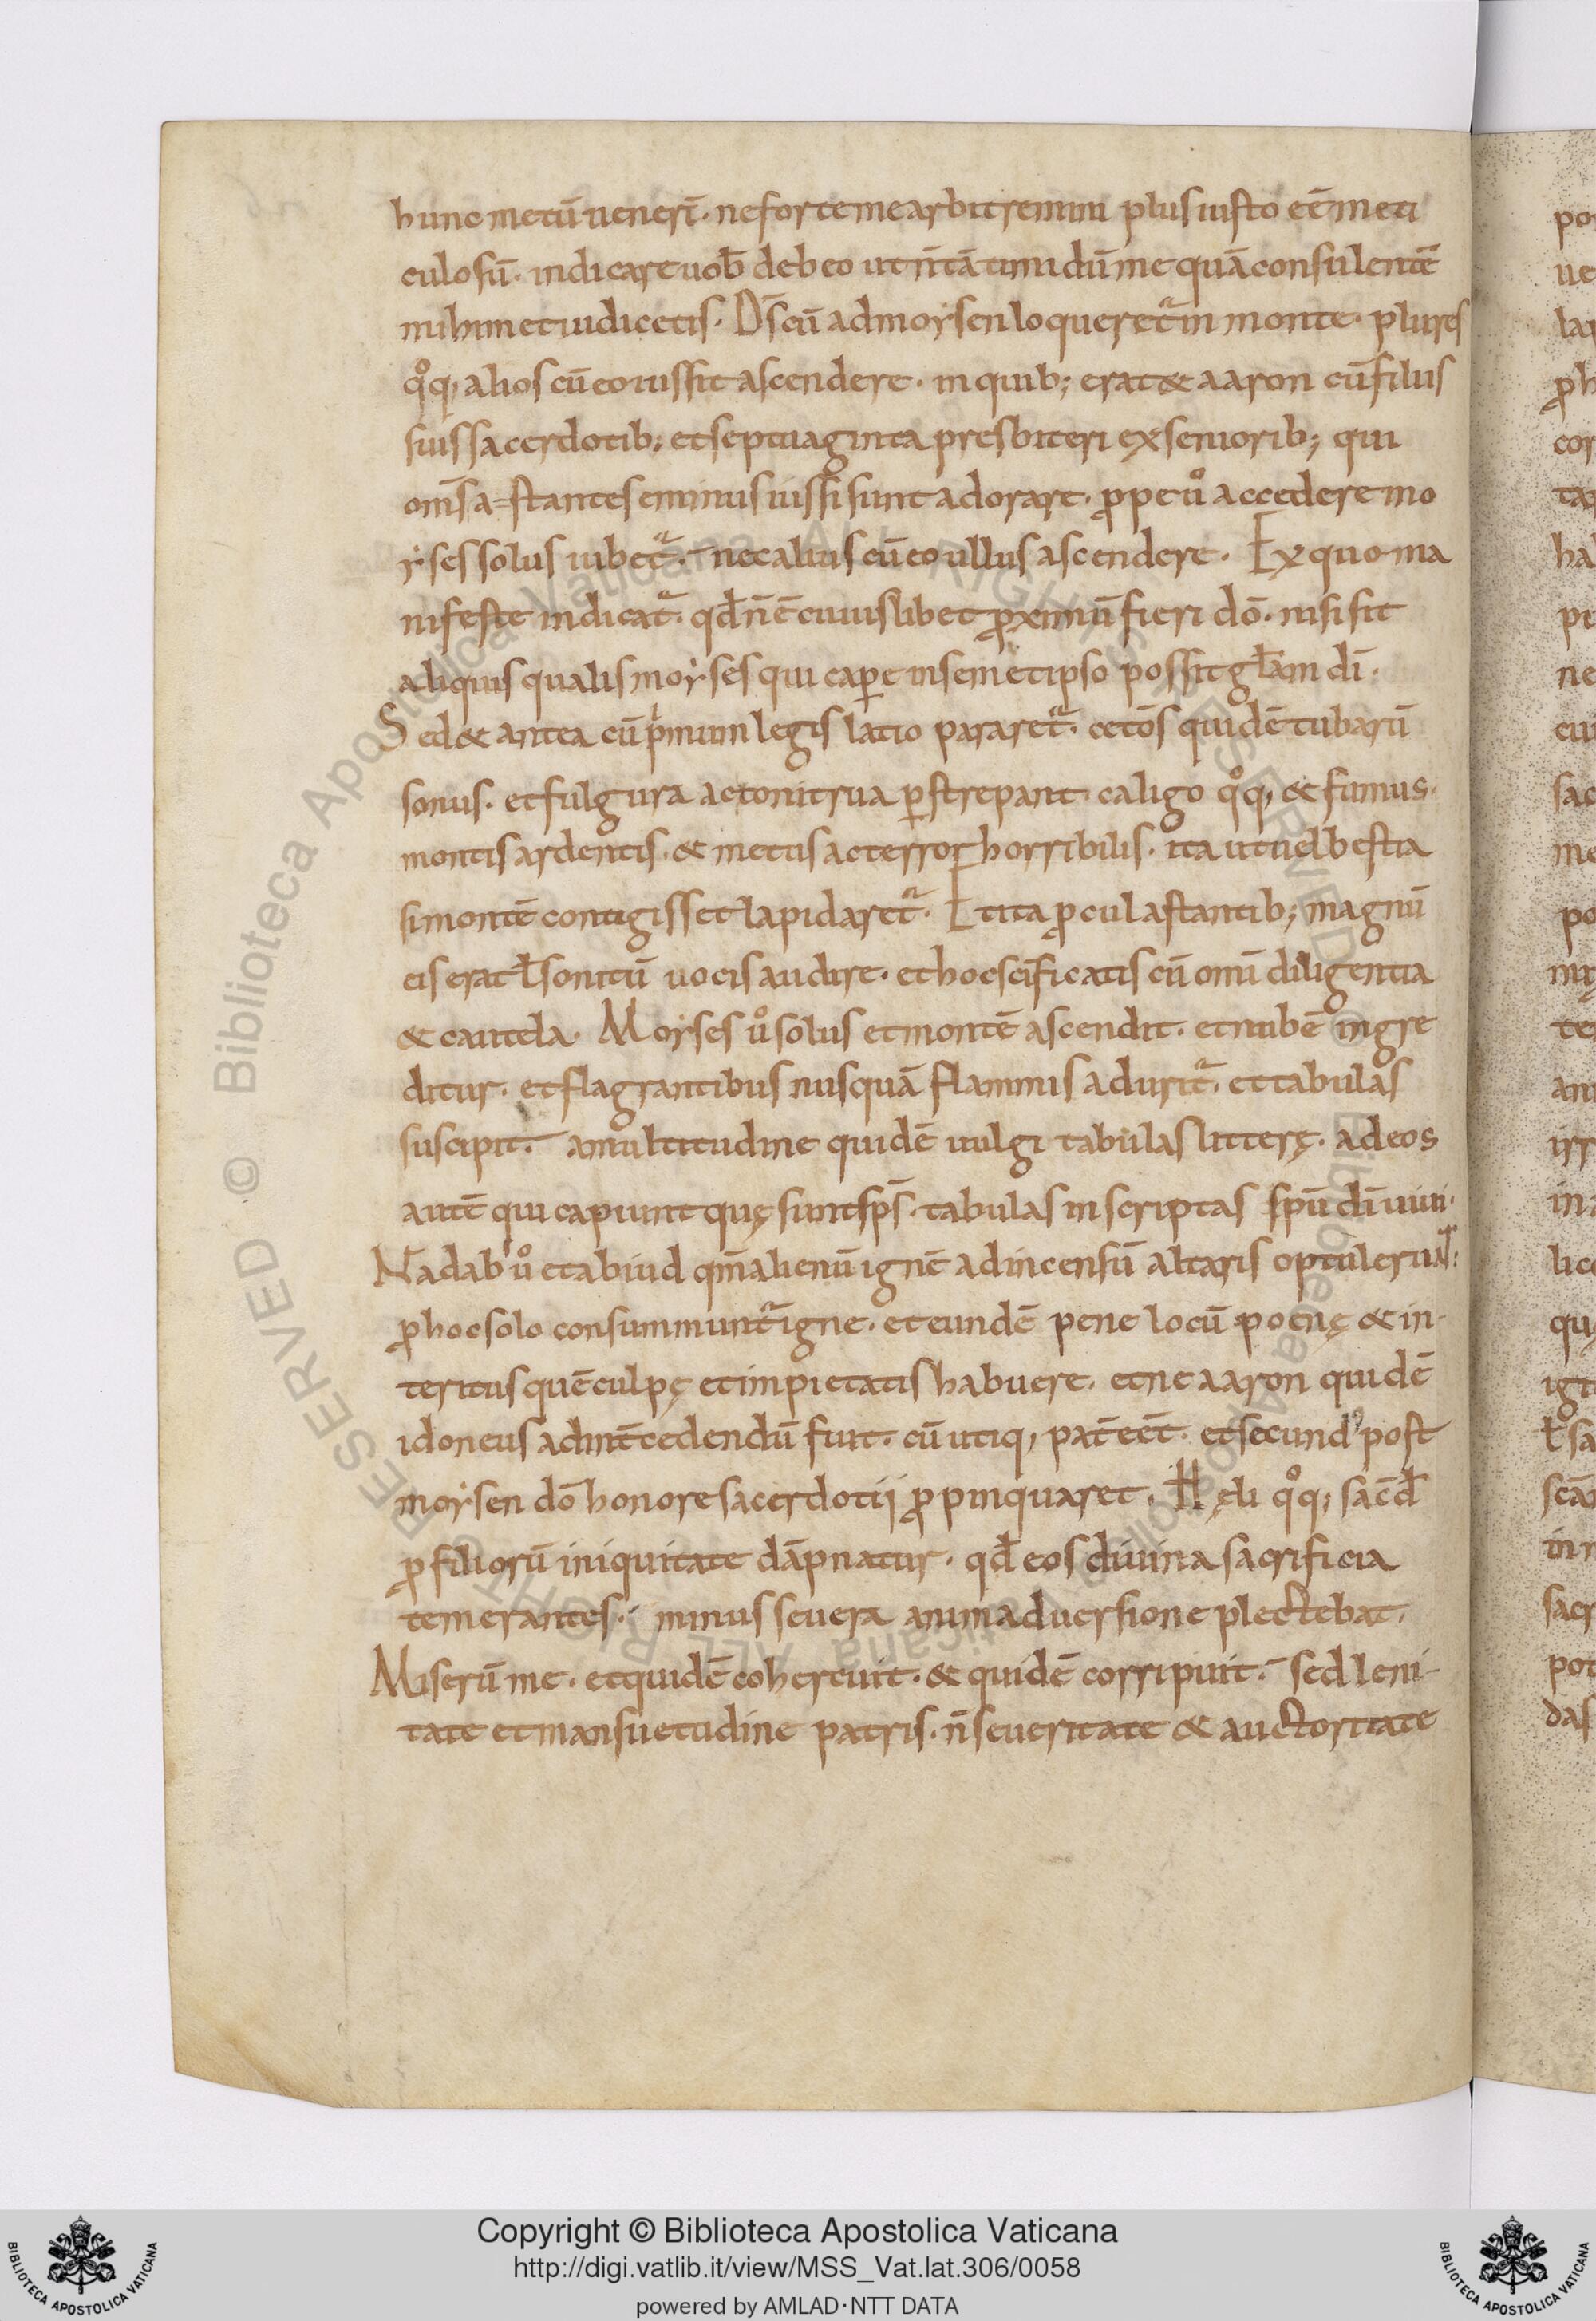 hunc metū ueneri̅. ne forte me arbitremini plus iusto eē meti
culosū. indicare uob̄ debeo ut n̄ tā timidū me quā consulentē
mihimet iudicetis. Dꝰ cū ad moẏsen loqueret̄ in monte. plures
qͦq; alios cū eo iussit ascendere. in quib; erat & aaron cū filiis
suis sacerdotib; et septuaginta presbiteri ex seniorib; qui
om̄s a=stantes eminus iussi sunt adorare. ꝓpe uͦ accedere mo
ẏses solus iubet̄. nec alius cū eo ullus ascendere. Ex quo ma
nifeste indicat̄. qd̄ n̄ ē cuiuslibet ꝓximū fieri dō. nisi sit
aliquis qualis moẏses qui caꝑe in semetipso possit gl̄am dī.
Sed & antea cū pͥmum legis latio pararet̄. cet̄os quidē tubarū
sonus. et fulgura ac tonitrua ꝑstrepant. caligo qͦq; & fumus.
montis ardentis. & metus ac terror horribilis. ita ut uel bestia
si montē contigisset lapidaret̄. Et ita ꝓcul astantib; magnū
eis erat ł sonitū uocis audire. et hoc scīficatis cū omī diligentia
& cautela. Moẏses uͦ solus et montē ascendit. et nubē ingre
ditur. et flagrantibus nusquā flammis adurit̄. et tabulas
suscipit. a multitudine quidē uulgi tabulas litterę. ad eos
autē qui capiunt quę sunt sp̄s. tabulas inscriptas spū dī uiui.
Nadab uͦ et abiud qm̄ alienū ignē ad incensū altaris optulerunt:
ꝓ hoc solo consummunt̄ igne. et eundē pene locū poenę & in-
teritus quē culpę et impietatis habuere. et ne aaron quidē
idoneus ad int̄cedendū fuit. cū utiq; pat̄ eēt. et secundꝰ post
moẏsen dō honore sacerdotij ꝓpinquaret. Hęli qͦq; sac̄d̄
ꝓ filiorū iniquitate dāpnatur. qd̄ eos diuina sacrificia
temerantes. minus seuera animaduersione plectebat.
Miserū me. et quidē cohercuit. & quidē corripuit. sed leni-
tate et mansuetudine patris. n̄ seueritate & auctoritate
po
ue
lar
ꝓh
cor
tar
hal
pe
ne
cui
sac
me
po
te
ani
irr
in
lico
quę
ł sa
in n
sacr
pot
das
Copyright © Biblioteca Apostolica Vaticana
http://digi.vatlib.it/view/MSS_Vat.lat.306/0058
powered by AMLAD·NTT DATA
BIBLIOTECA APOSTOLICA VATICANA
BIBLIOTECA APOSTOLICA VATICANA
© Biblioteca Apostolica Vaticana ALL RIGHTS RESERVED © Biblioteca Apostolica Vaticana ALL RIGHTS RESERVED